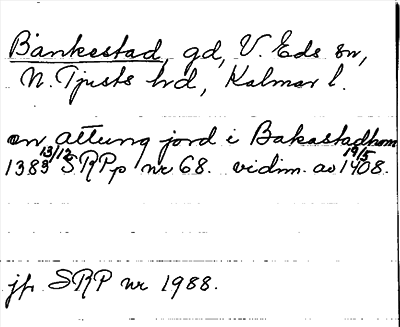 Bänkestad, gd, V. Eds sn,
N. Tjusts hd, Kalmar l.
en attung jord i Bakastadhom
1383 13/12 SRPp nr 68. vidim. av 19/5 1408.
jfr SRP nr 1988.